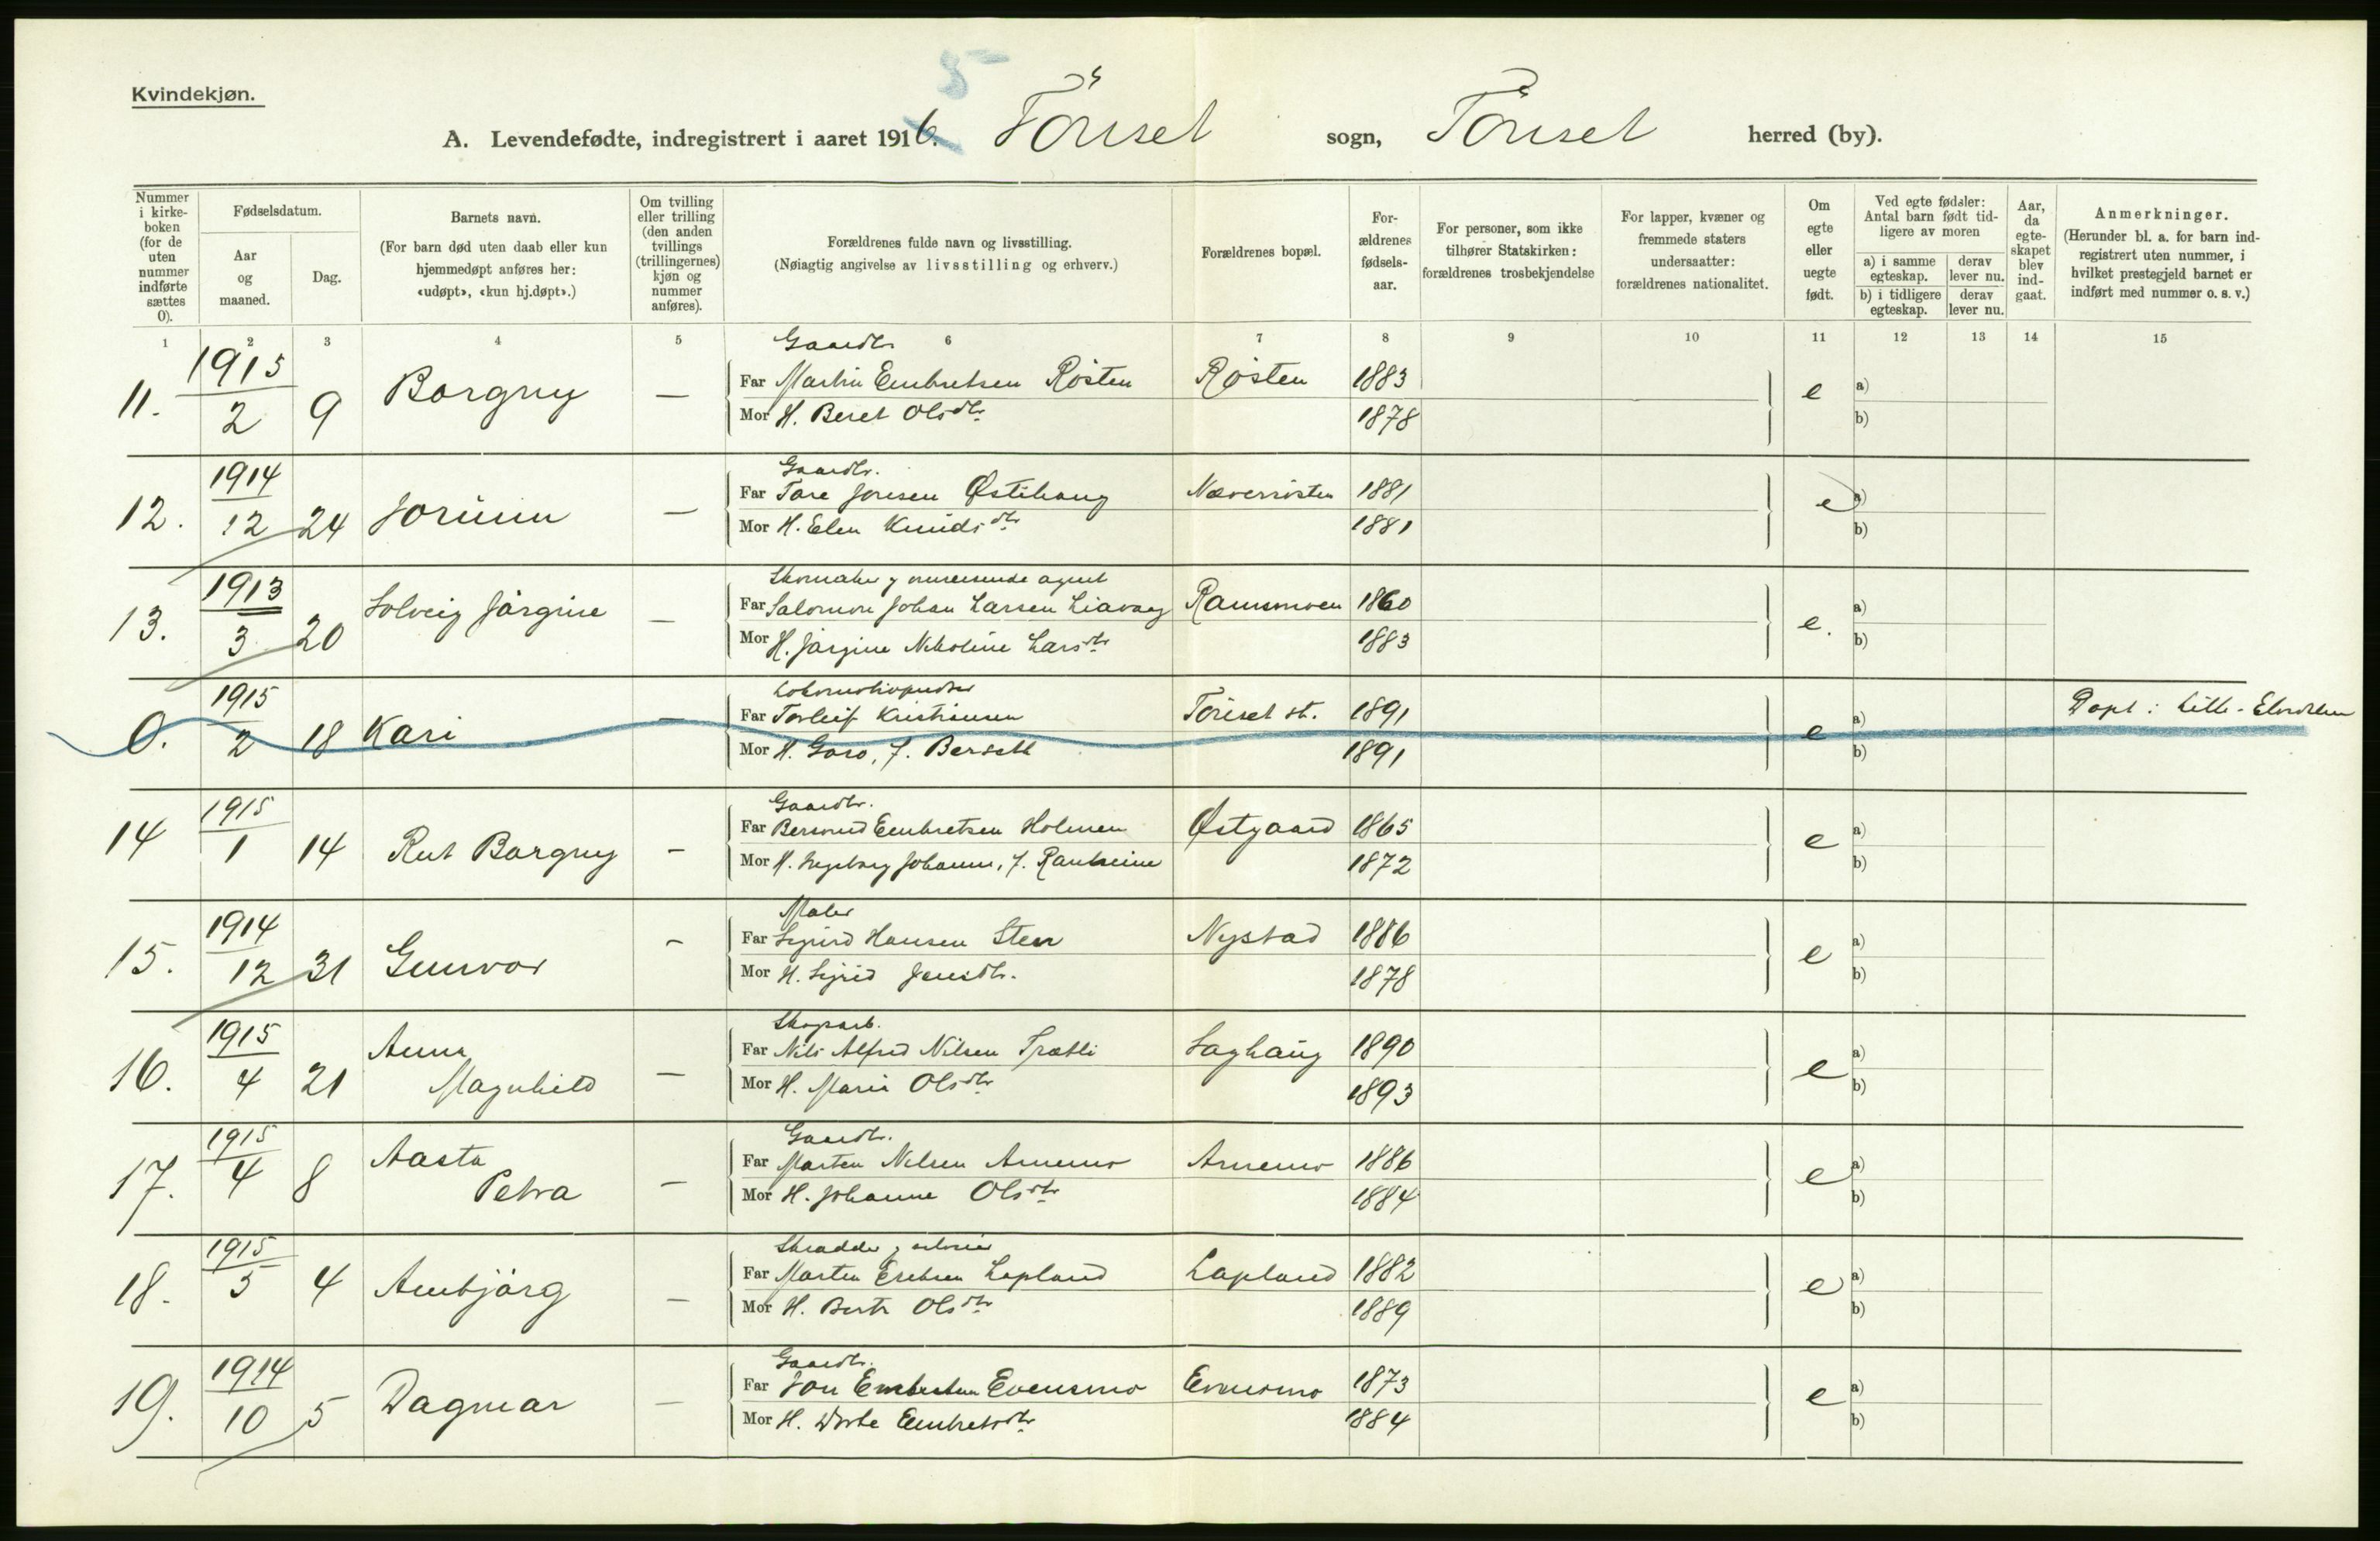 Kvindekjøn.
5
A. Levendefødte, indregistrert i aaret 1916. Tönset sogn, Tönset herred (by).
Nummer i kirke-boken (for de uten nummer indførte sættes 0).
Fødselsdatum.
Aar og maaned.
Dag.
Barnets navn.
(For barn død uten daab eller kun hjemmedøpt anføres her: «udøpt», «kun hj.døpt».)
Om tvilling eller trilling (den anden tvillings (trillingernes) kjøn og nummer anføres).
Forældrenes fulde navn og livsstilling.
(Nøiagtig angivelse av livsstilling og erhverv.)
Forældrenes bopæl.
For-ældrenes fødsels-aar.
For personer, som ikke tilhører Statskirken: forældrenes trosbekjendelse
For lapper, kvæner og fremmede staters undersaatter: forældrenes nationalitet.
Om egte eller uegte født.
Ved egte fødsler: Antal barn født tid-ligere av moren
a) i samme egteskap.
derav lever nu.
b) i tidligere egteskap.
derav lever nu.
Aar, da egte-skapet blev ind-gaat.
Anmerkninger.
(Herunder bl. a. for barn ind-registrert uten nummer, i hvilket prestegjeld barnet er indført med nummer o. s. v.)
1 2 3 4 5 6 7 8 9 10 11 12 13 14 15
Gaardbr.
11. 1915 2 9 Borgny — Far Martin Embretsen Røsten Røsten 1883 e a)
Mor H. Beret Olsdtr. 1878 b)
Gaardbr.
12. 1914 12 24 Jorunn — Far Tore Jonsen Østihaug Næverrösten 1881 e a)
Mor H. Elen Knudsdtr 1881 b)
Skomaker & omreisende agent
13. 1913 3 20 Solveig Jörgine — Far Salomon Johan Larsen Liavaag Ramsmoen 1860 e. a)
Mor H. Jørgine Nikoline Larsdtr 1883 b)
Lokomotivpudser
0. 1915 2 18 Kari — Far Torleif Kristiansen Tönset st. 1891 e a) Döpt: Lille-Elvedalen
Mor H. Goro, f. Berseth 1891 b)
Gaardbr.
14 1915 1 14 Rut Borgny — Far Bersvend Embretsen Holmen Østgaard 1865 e a)
Mor H. Ingeborg Johanne, f. Ranheim 1872 b)
Maler
15. 1914 12 31 Gunvor — Far Sigurd Hansen Steen Nystad 1886 e a)
Mor H. Sigrid Jensdtr. 1878 b)
Skogarb.
16. 1915 4 21 Anna Magnhild — Far Nils Alfred Nilsen Trætli Saghaug 1890 e a)
Mor H. Marie Olsdtr 1893 b)
Gaardbr.
17. 1915 4 8 Aasta Petra — Far Morten Nilsen Arnemo Arnemo 1886 e a)
Mor H. Johanne Olsdtr 1884 b)
Skrædder &
18. 1915 5 4 Arnbjörg — Far Morten Lapland Lapland 1882 e a)
Mor H. Olsdtr 1889 b)
Gaardbr.
19. 1914 10 5 Dagmar — Far Jon Embretsen Evensmo Evensmo 1873 e a)
Mor H. Dorte Embretsdtr. 1884 b)